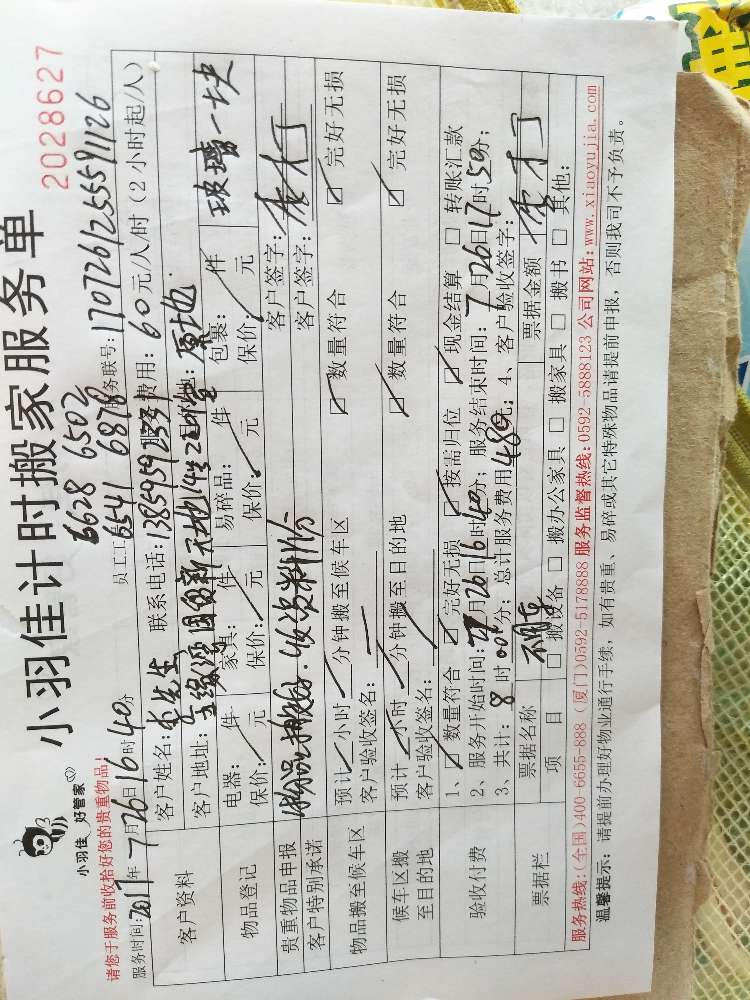 小羽佳 好管家
小羽佳计时搬家服务单
2028627
6628 6502
6541 6878
请您于服务前收拾好您的贵重物品！
服务时间:2017年7月26日16时40分 员工工 服务联号:170726125559 1126
客户资料
客户姓名: 先生 联系电话: 服务费用: 60元/人/时（2小时起/人）
客户地址: 原地
物品登记
电器: 件 家具: 件 易碎品: 件 包裹: 件 玻璃一块
保价: 元 保价: 元 保价: 元 保价: 元
贵重物品申报 客户签字:
客户特别承诺 客户签字:
物品搬至候车区
预计 小时 分钟搬至候车区 ☑ 数量符合 ☑ 完好无损
客户验收签名:
候车区搬至目的地
预计 小时 分钟搬至目的地 ☑ 数量符合 ☑ 完好无损
客户验收签名:
验收付费
1、☑ 数量符合 ☑ 完好无损 ☑ 按需归位 ☑ 现金结算 □ 转账汇款
2、服务开始时间: 7月26日16时40分; 服务结束时间: 7月26日17时50分;
3、共计: 8时00分; 总计服务费用 480元; 4、客户验收签字:
票据栏
票据名称 票据金额
项 目 □ 搬设备 □ 搬办公家具 □ 搬家具 □ 搬书 □ 其他:
服务热线:(全国)400-6655-888 (厦门)0592-5178888 服务监督热线:0592-5888123 公司网站:www.xiaoyujia.com
温馨提示: 请提前办理好物业通行手续，如有贵重、易碎或其它特殊物品请提前申报，否则我司不予负责。